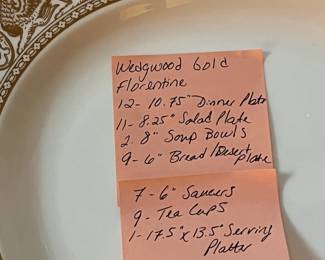 Wedgwood Gold
Florentine
12- 10.75" Dinner Plate
11- 8.25" Salad Plate
2- 8" Soup Bowls
9- 6" Bread/Desert Plate
7- 6" Saucers
9- Tea Cups
1- 17.5" x 13.5" Serving
Platter